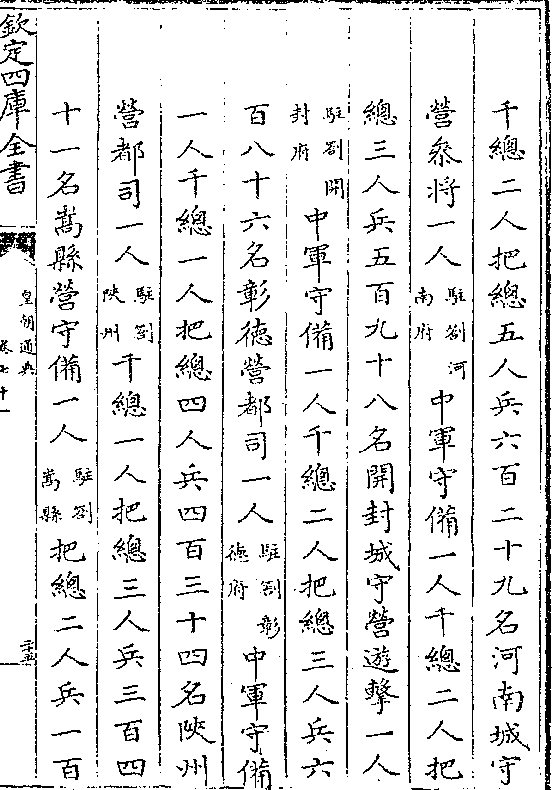 千總二人把總五人兵六百二十九名河南城守
營叅將一人駐劄河南府中軍守備一人千總二人把
總三人兵五百九十八名開封城守營遊擊一人
駐劄開封府中軍守備一人千總二人把總三人兵六
百八十六名彰德營都司一人駐劄彰德府中軍守備
一人千總一人把總四人兵四百三十四名陝州
營都司一人駐劄陝州千總一人把總三人兵三百四
十一名嵩縣營守備一人駐劄嵩縣把總二人兵一百
欽定四庫全書
皇朝通典
卷七十一
二十五